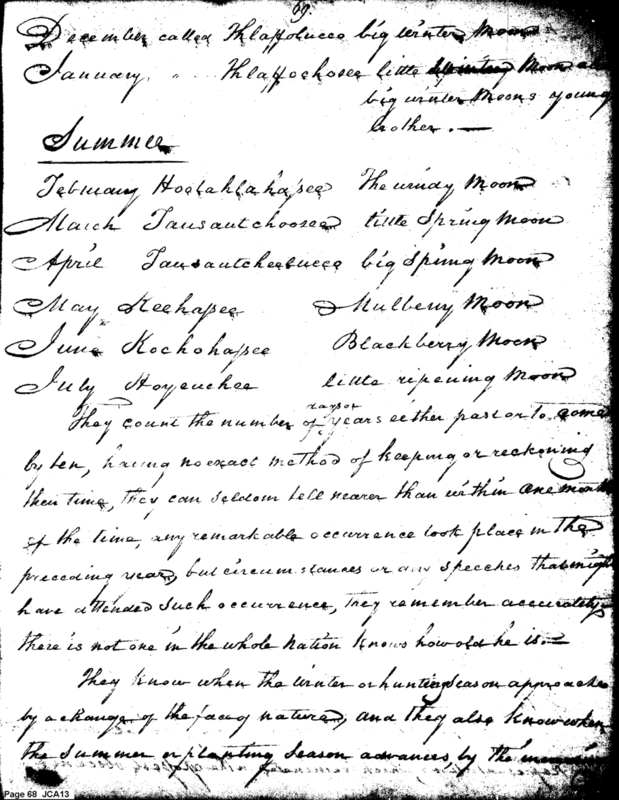 69.
December called Thlaffolucco big winter Moon
January, " Thlaffochosee little Moon
big winter Moons young
brother. —
Summer
February Hoetahlahasee The windy Moon
March Tausautchoosee little Spring Moon
April Tausautcheelucco big Spring Moon
May Keehasee Mulberry Moon
June Kochohasee Blackberry Moon
July Hoyeuchee little ripening Moon
days or
They count the number of years either past or to come
by ten, having no exact method of keeping or reckoning
their time, they can seldom tell nearer than within one month
of the time, any remarkable occurrence took place in the
preceding year, but circumstances or any speeches that might
have attended such occurrence, they remember accurately,
there is not one in the whole Nation knows how old he is. —
They know when the winter or hunting season approaches
by a change of the face of nature, and they also know when
the Summer or planting season advances, by the
Page 68 JCA13